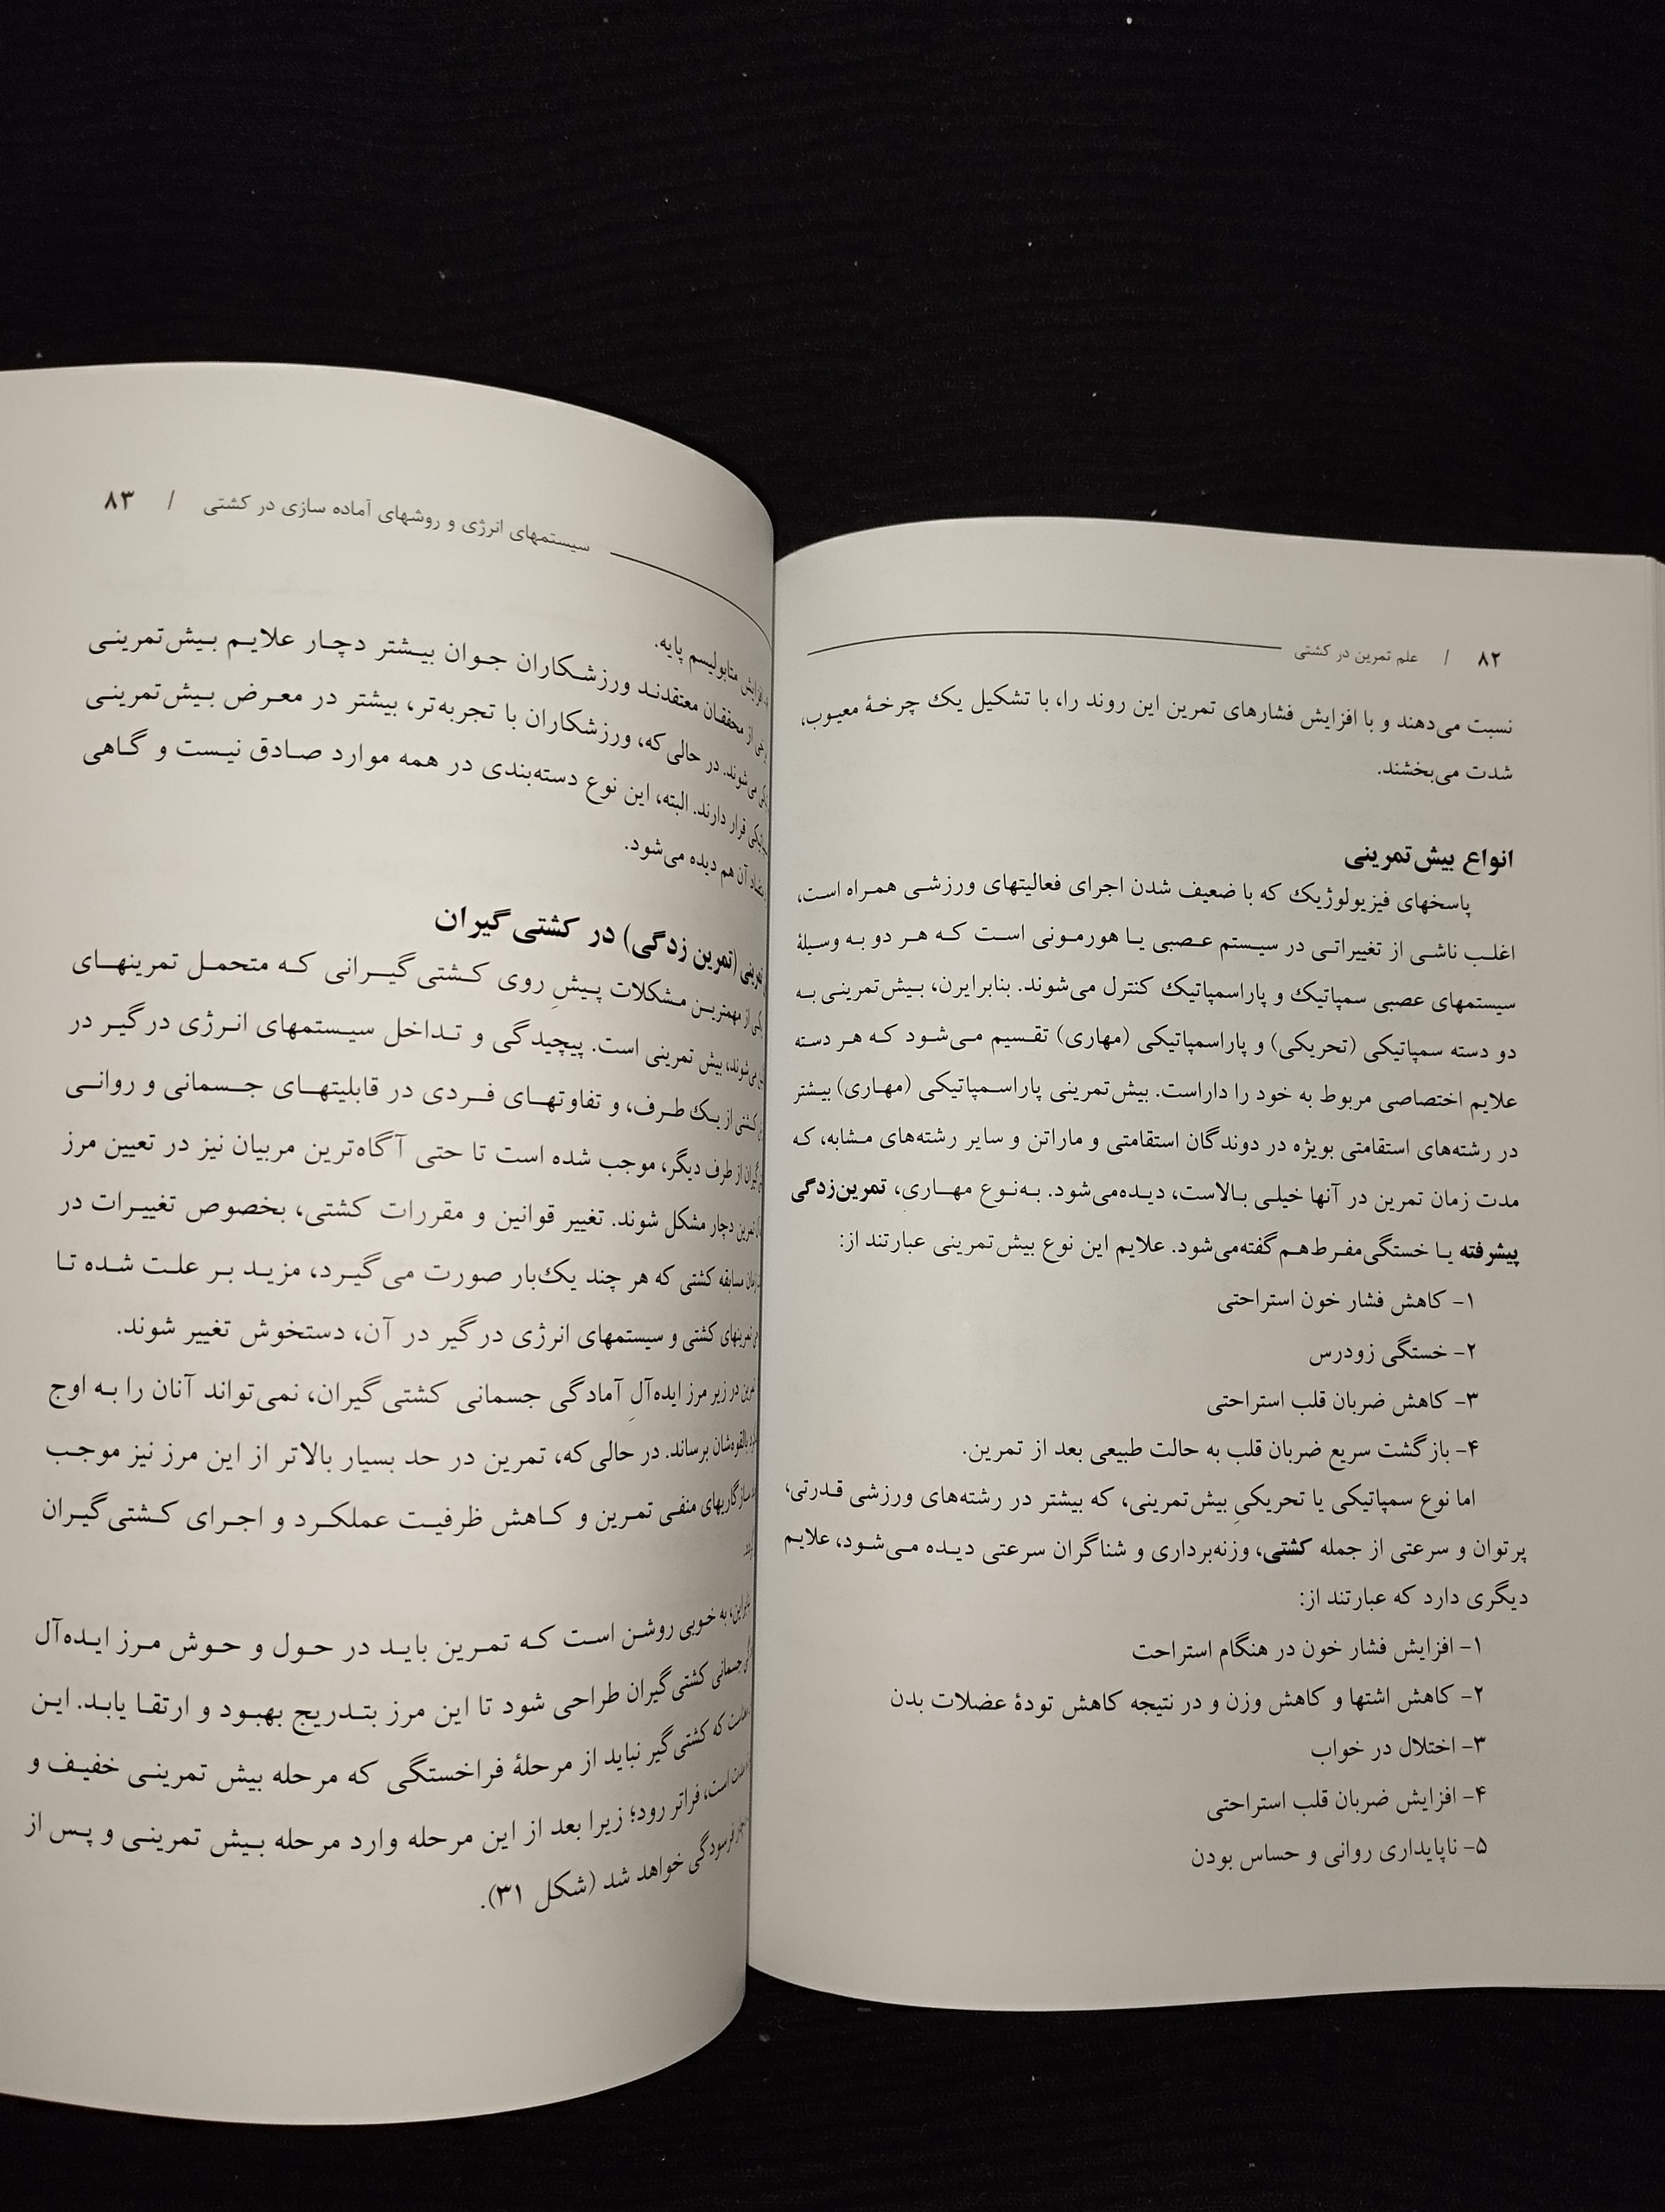 ۸۲ / علم تمرین در کشتی
نسبت می‌دهند و با افزایش فشارهای تمرین این روند را، با تشکیل یک چرخهٔ معیوب،
شدت می‌بخشند.
انواع بیش‌تمرینی
پاسخهای فیزیولوژیک که با ضعیف شدن اجرای فعالیتهای ورزشی همراه است،
اغلب ناشی از تغییراتی در سیستم عصبی یا هورمونی است که هر دو به وسیلهٔ
سیستمهای عصبی سمپاتیک و پاراسمپاتیک کنترل می‌شوند. بنابرایرن، بیش‌تمرینی به
دو دسته سمپاتیکی (تحریکی) و پاراسمپاتیکی (مهاری) تقسیم می‌شود که هر دسته
علایم اختصاصی مربوط به خود را داراست. بیش‌تمرینی پاراسمپاتیکی (مهاری) بیشتر
در رشته‌های استقامتی بویژه در دوندگان استقامتی و ماراتن و سایر رشته‌های مشابه، که
مدت زمان تمرین در آنها خیلی بالاست، دیده‌می‌شود. به‌نوع مهاری، تمرین‌زدگی
پیشرفته یا خستگی‌مفرط‌هم‌گفته‌می‌شود. علایم این نوع بیش‌تمرینی عبارتند از:
۱- کاهش فشار خون استراحتی
۲- خستگی زودرس
۳- کاهش ضربان قلب استراحتی
۴- بازگشت سریع ضربان قلب به حالت طبیعی بعد از تمرین.
اما نوع سمپاتیکی یا تحریکیِ بیش‌تمرینی، که بیشتر در رشته‌های ورزشی قدرتی،
پرتوان و سرعتی از جمله کشتی، وزنه‌برداری و شناگران سرعتی دیده می‌شود، علایم
دیگری دارد که عبارتند از:
۱- افزایش فشار خون در هنگام استراحت
۲- کاهش اشتها و کاهش وزن و در نتیجه کاهش تودهٔ عضلات بدن
۳- اختلال در خواب
۴- افزایش ضربان قلب استراحتی
۵- ناپایداری روانی و حساس بودن
سیستمهای انرژی و روشهای آماده سازی در کشتی / ۸۳
افزایش متابولیسم پایه.
از محققان معتقدند ورزشکاران جوان بیشتر دچار علایم بیش‌تمرینی
می‌شوند. در حالی‌که، ورزشکاران با تجربه‌تر، بیشتر در معرض بیش‌تمرینی
قرار دارند. البته، این نوع دسته‌بندی در همه موارد صادق نیست و گاهی
آن هم دیده می‌شود.
(تمرین زدگی) در کشتی‌گیران
از مهمترین مشکلات پیشِ روی کشتی‌گیرانی که متحمل تمرینهای
می‌شوند، بیش تمرینی است. پیچیدگی و تداخل سیستمهای انرژی درگیر در
کشتی از یک طرف، و تفاوتهای فردی در قابلیتهای جسمانی و روانی
از طرف دیگر، موجب شده است تا حتی آگاه‌ترین مربیان نیز در تعیین مرز
تمرین دچار مشکل شوند. تغییر قوانین و مقررات کشتی، بخصوص تغییرات در
مسابقه کشتی که هر چند یک‌بار صورت می‌گیرد، مزید بر علت شده تا
تمرینهای کشتی و سیستمهای انرژی درگیر در آن، دستخوش تغییر شوند.
در زیر مرز ایده‌آلِ آمادگی جسمانی کشتی‌گیران، نمی‌تواند آنان را به اوج
برساند. در حالی‌که، تمرین در حد بسیار بالاتر از این مرز نیز موجب
سازگاریهای منفی تمرین و کاهش ظرفیت عملکرد و اجرای کشتی‌گیران
به خوبی روشن است که تمرین باید در حول و حوش مرز ایده‌آل
جسمانی کشتی‌گیران طراحی شود تا این مرز بتدریج بهبود و ارتقا یابد. این
که کشتی‌گیر نباید از مرحلهٔ فراخستگی که مرحله بیش تمرینی خفیف و
است، فراتر رود؛ زیرا بعد از این مرحله وارد مرحله بیش تمرینی و پس از
فرسودگی خواهد شد (شکل ۳۱).